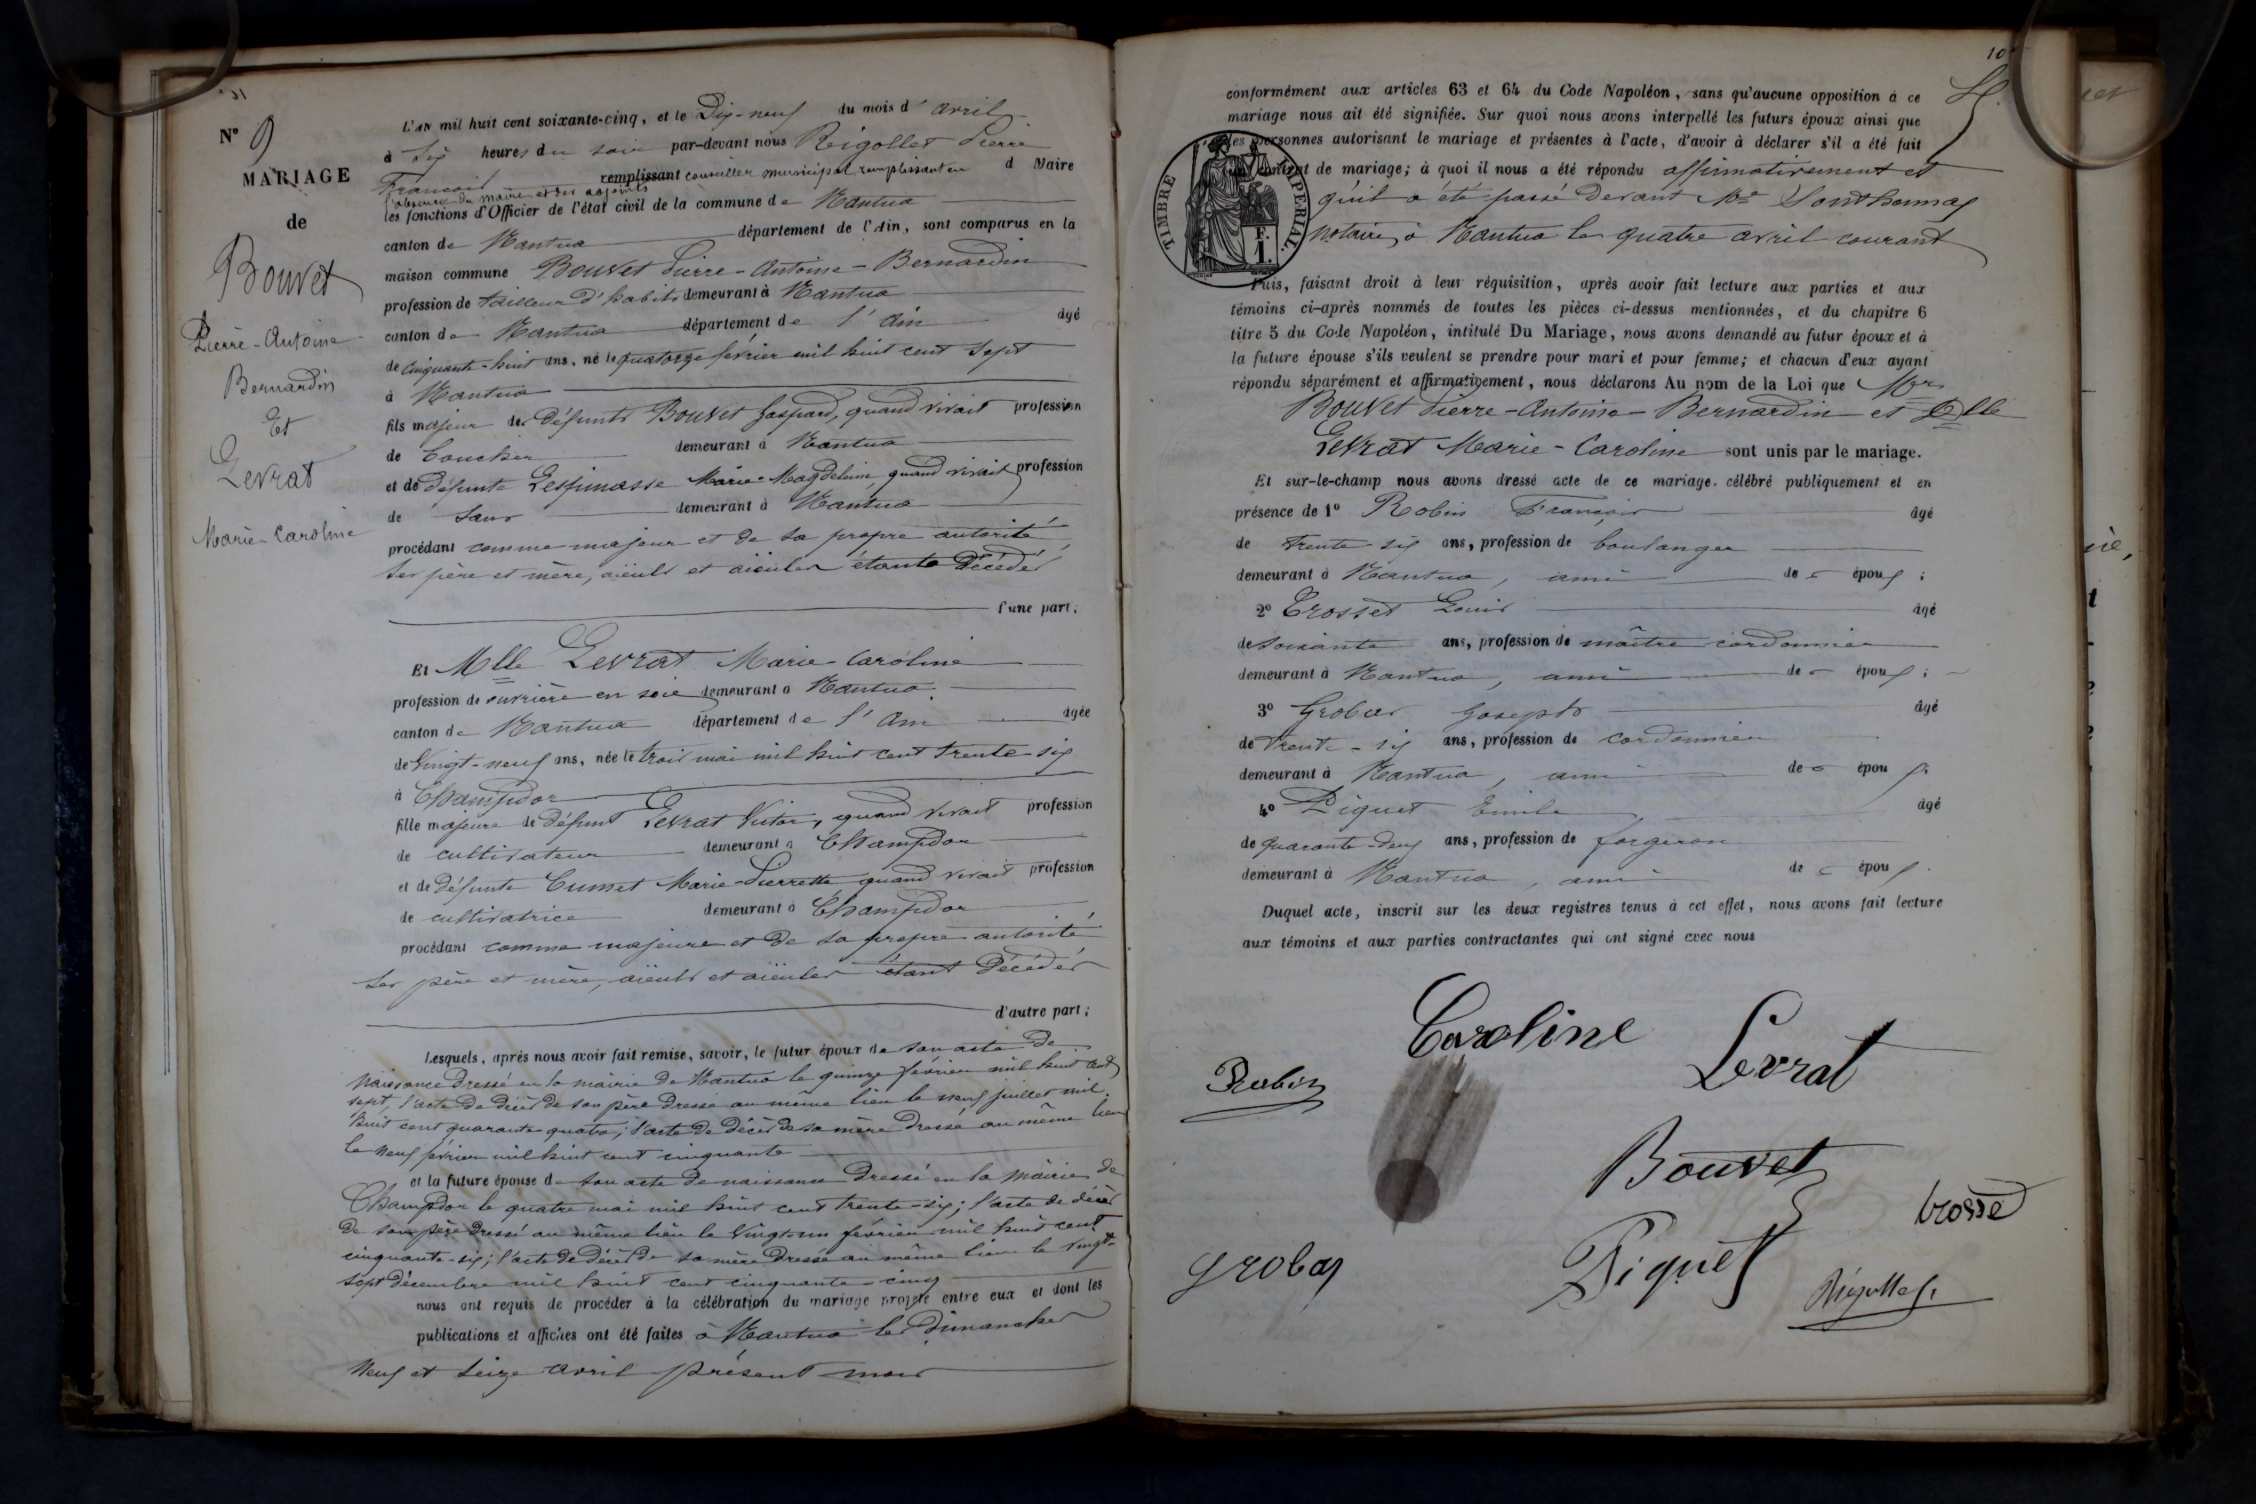 N° 9
MARIAGE
de
Bouvet
Pierre-Antoine
Bernardin
Et
Levrat
Marie-Caroline
L'AN mil huit cent soixante-cinq, et le Dix-neuf du mois d' avril
à six heures du soir par-devant nous Rigollet Pierre
François remplissant conseiller municipal remplissant en d Maire
l'absence du maire et des adjoints
les fonctions d'Officier de l'état civil de la commune de Nantua
canton de Nantua département de l'Ain, sont comparus en la
maison commune Bouvet Pierre-Antoine-Bernardin
profession de tailleur d'habits demeurant à Nantua
canton de Nantua département de l'Ain âgé
de cinquante-huit ans, né le quatorze février mil huit cent sept
à Nantua
fils majeur de défunts Bouvet Gaspard, quand vivait profession
de boucher demeurant à Nantua
et de défunte Lespinasse Marie-Magdeleine, quand vivait profession
de sans demeurant à Nantua
procédant comme majeur et de sa propre autorité,
ses père et mère, aïeuls et aïeules étants décédés
d'une part;
Et Mlle Levrat Marie-Caroline
profession de ouvrière en soie demeurant à Nantua
canton de Nantua département de l'Ain âgée
de vingt-neuf ans, née le trois mai mil huit cent trente-six
à Champdor
fille majeure de défunt Levrat Victor, quand vivait profession
de cultivateur demeurant à Champdor
et de défunte Cumet Marie-Pierrette quand vivait profession
de cultivatrice demeurant à Champdor
procédant comme majeure et de sa propre autorité
ses père et mère, aïeuls et aïeules étant décédés
d'autre part;
Lesquels, après nous avoir fait remise, savoir, le futur époux de son acte de
naissance dressé en la mairie de Nantua le quinze février mil huit cent
sept, l'acte de décès de son père dressé au même lieu le neuf juillet mil
huit cent quarante quatre; l'acte de décès de sa mère dressé au même lieu
le neuf février mil huit cent cinquante
et la future épouse de son acte de naissance dressé en la mairie de
Champdor le quatre mai mil huit cent trente-six; l'acte de décès
de son père dressé au même lieu le vingt-un février mil huit cent
cinquante-six; l'acte de décès de sa mère dressé au même lieu le vingt-
sept décembre mil huit cent cinquante-cinq
nous ont requis de procéder à la célébration du mariage projeté entre eux et dont les
publications et affiches ont été faites à Nantua les Dimanches
neuf et seize avril présent mois
10
conformément aux articles 63 et 64 du Code Napoléon, sans qu'aucune opposition à ce
mariage nous ait été signifiée. Sur quoi nous avons interpellé les futurs époux ainsi que
les personnes autorisant le mariage et présentes à l'acte, d'avoir à déclarer s'il a été fait
un contrat de mariage; à quoi il nous a été répondu affirmativement et
qu'il a été passé devant Me Sonthonnax
notaire, à Nantua le quatre avril courant
TIMBRE IMPERIAL.
1 F.
Puis, faisant droit à leur réquisition, après avoir fait lecture aux parties et aux
témoins ci-après nommés de toutes les pièces ci-dessus mentionnées, et du chapitre 6
titre 5 du Code Napoléon, intitulé Du Mariage, nous avons demandé au futur époux et à
la future épouse s'ils veulent se prendre pour mari et pour femme; et chacun d'eux ayant
répondu séparément et affirmativement, nous déclarons Au nom de la Loi que Mr
Bouvet Pierre-Antoine-Bernardin et Dlle
Levrat Marie-Caroline sont unis par le mariage.
Et sur-le-champ nous avons dressé acte de ce mariage, célébré publiquement et en
présence de 1° Robin François âgé
de trente-six ans, profession de boulanger
demeurant à Nantua, ami de époux;
2° Crosset Louis âgé
de soixante ans, profession de maître cordonnier
demeurant à Nantua, ami de époux;
3° Grobas Joseph âgé
de trente-six ans, profession de cordonnier
demeurant à Nantua, ami de époux;
4° Piquet Emile âgé
de quarante-deux ans, profession de forgeron
demeurant à Nantua, ami de époux.
Duquel acte, inscrit sur les deux registres tenus à cet effet, nous avons fait lecture
aux témoins et aux parties contractantes qui ont signé avec nous
Caroline Levrat
Robin
Bouvet
Crosset
Grobas
Piquet
Rigollet